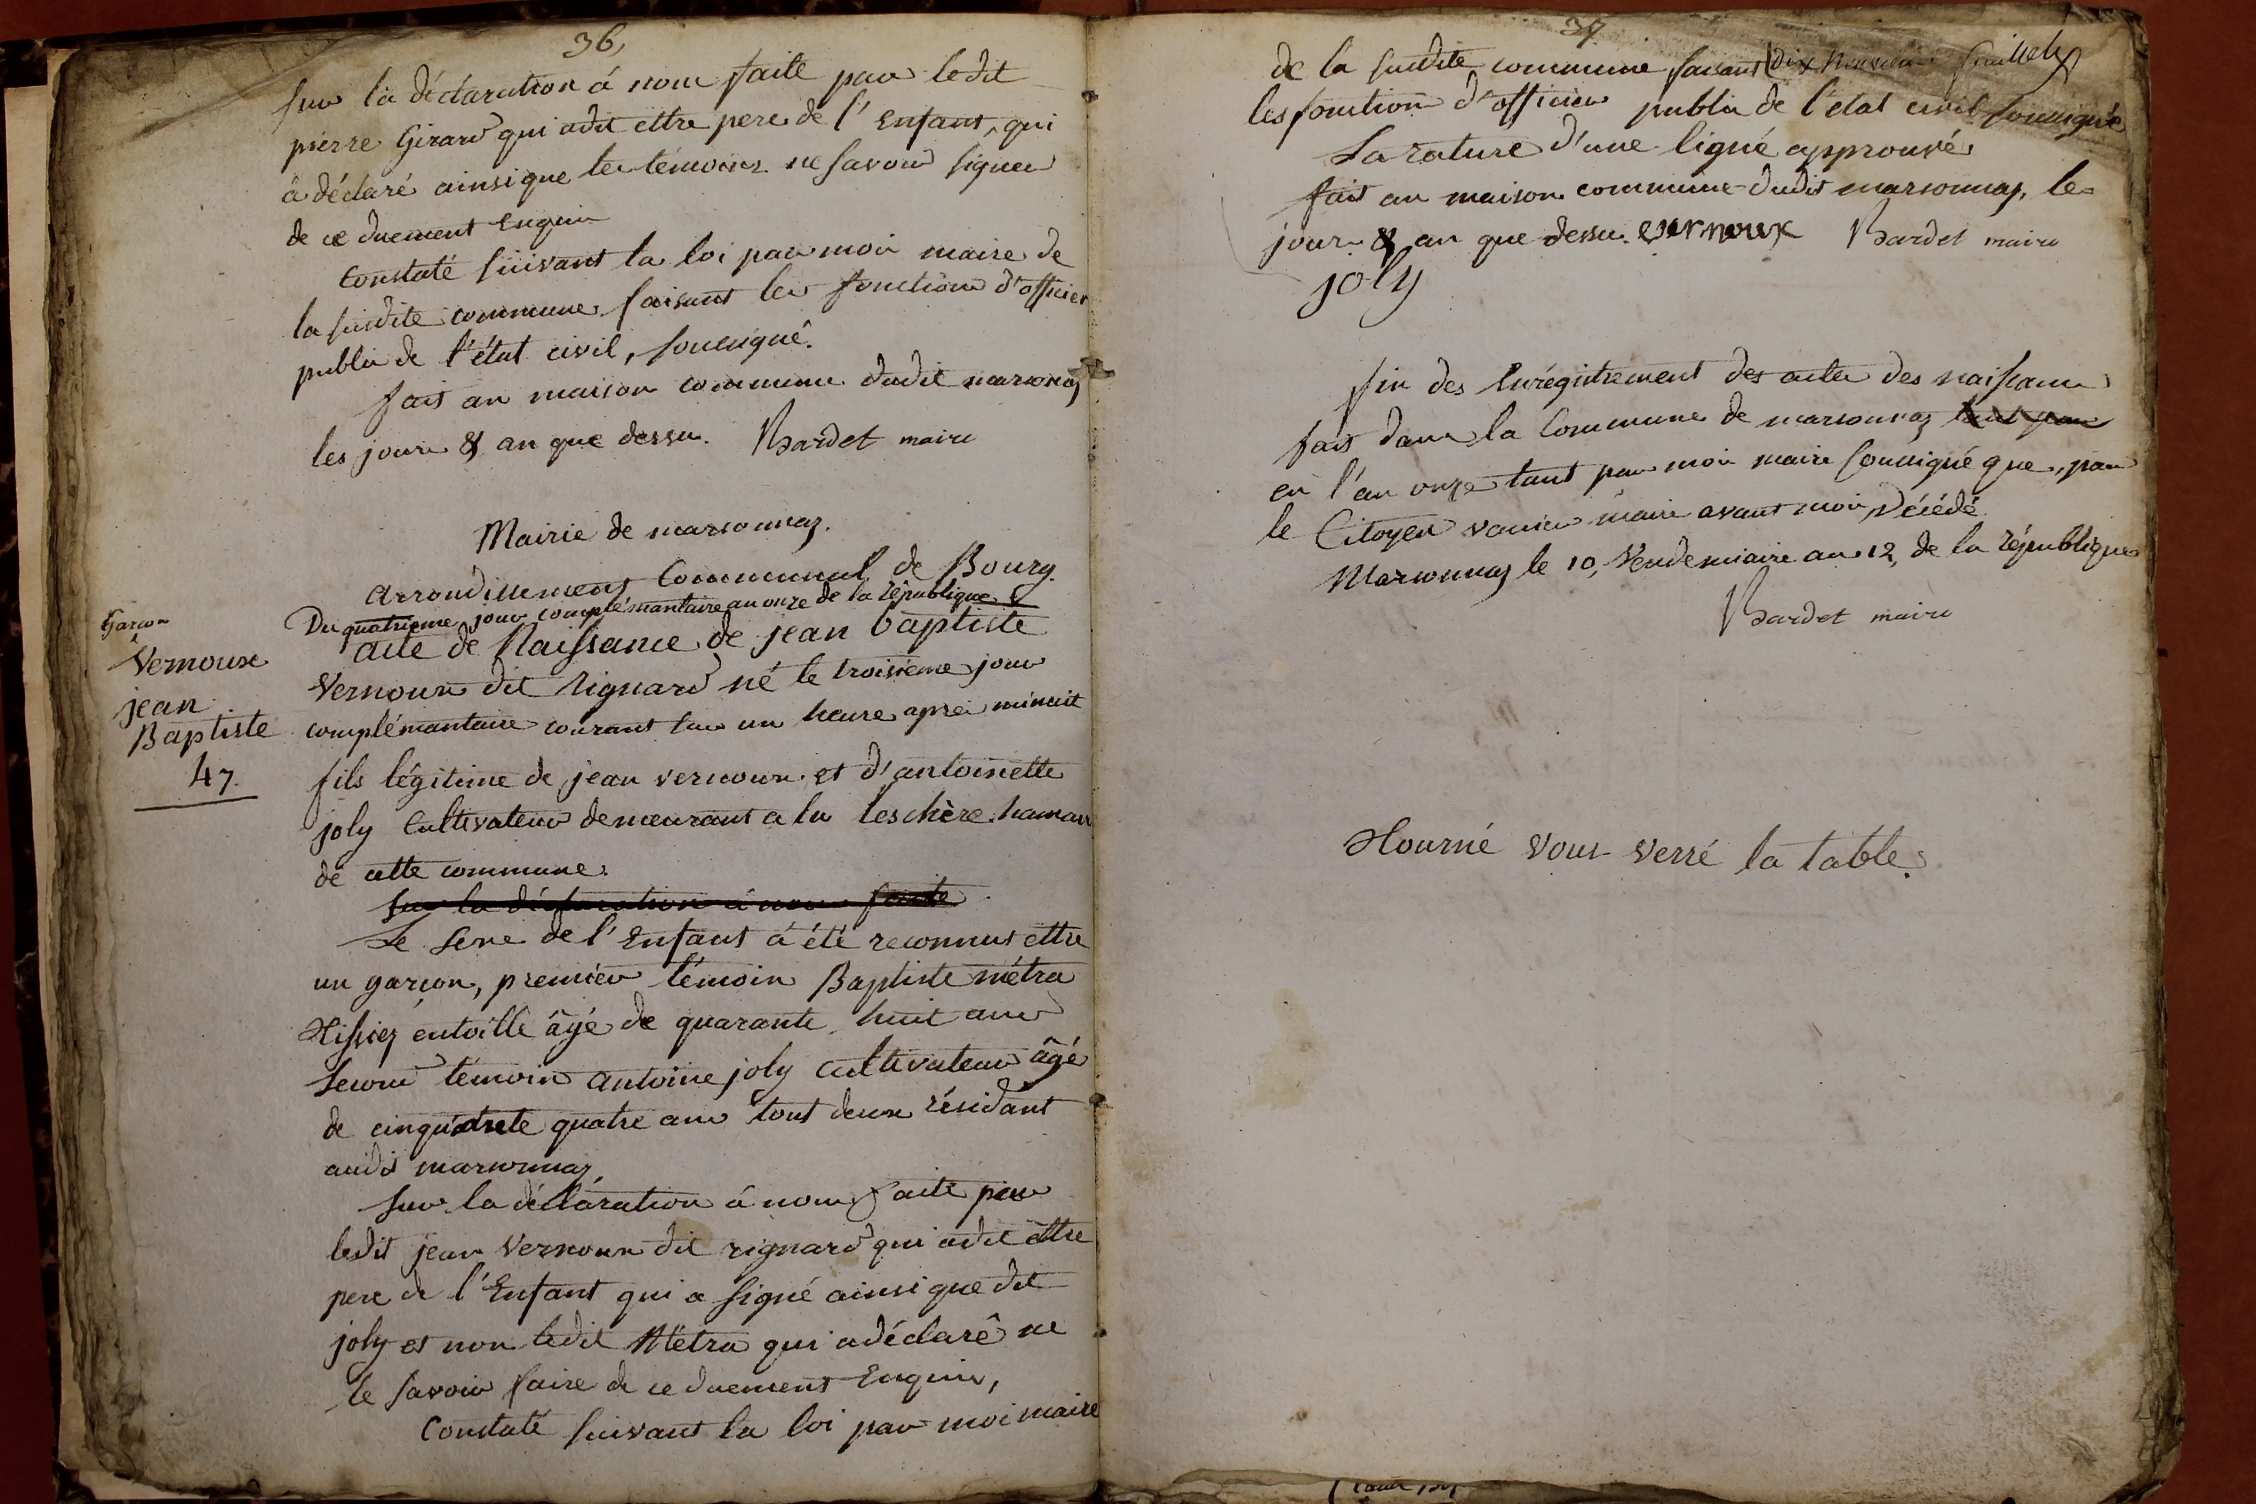 36,
sur la déclaration á nous faite par ledit
pierre Girard qui adit ettre pere de l'Enfant, qui
á déclaré ainsi que les témoins ne savoir signer
de ce duement Enquis
Constaté suivant la loi par moi maire de
la susdite commune faisant les fonctions d'officier
public de l'état civil, soussigné.
fait en maison commune dudit marsonnas
les jour & an que dessus. Bardet maire
Mairie de marsonnas.
arrondissement Communal de Bourg.
Du quatrieme jour complémantaire an onze de la république
acte de Naissance de jean baptiste
Garcon
Vernoux
jean
Baptiste
47.
Vernoux dit rignard né le troisieme jour
complémantaire courant sur un heure apres minuit
fils légitime de jean vernoux et d'antoinette
joly Cultivateur demeurant a la leschère hamau
de cette commune.
sur la déclaration á nous faite
Le sexe de l'Enfant á été reconnut ettre
un garçon, premier témoin Baptiste métra
Tissier entoille âgé de quarante huit ans
second témoin antoine joly cultivateur âgé
de cinquante quatre ans tout deux résidant
audit marsonnas
sur la déclaration á nous faite par
ledit jean Vernoux dit rignard qui adit ettre
pere de l'Enfant qui a signé ainsi que dit
joly et non ledit Métra qui adéclaré ne
le savoir faire de ce duement Enquis,
Constaté suivant la loi par moi maire
37
de la susdite commune faisant dix neuvieme feuillet
les fonctions d'officier public de l'état civil soussigné
La rature d'une ligne approuvé
fait en maison commune dudit marsonnas, le
jour & an que dessus. vernoux Bardet maire
joly
fin des Enrégistrement des actes des naissance
fait dans la Commune de marsonnas tant par
en l'an onze tant par moi maire soussigné que, par
le Citoyen maire avant moi, Décédé
Marsonnas le 10, Vendemiaire an 12, de la république
Bardet maire
Tourné vous verré la table.